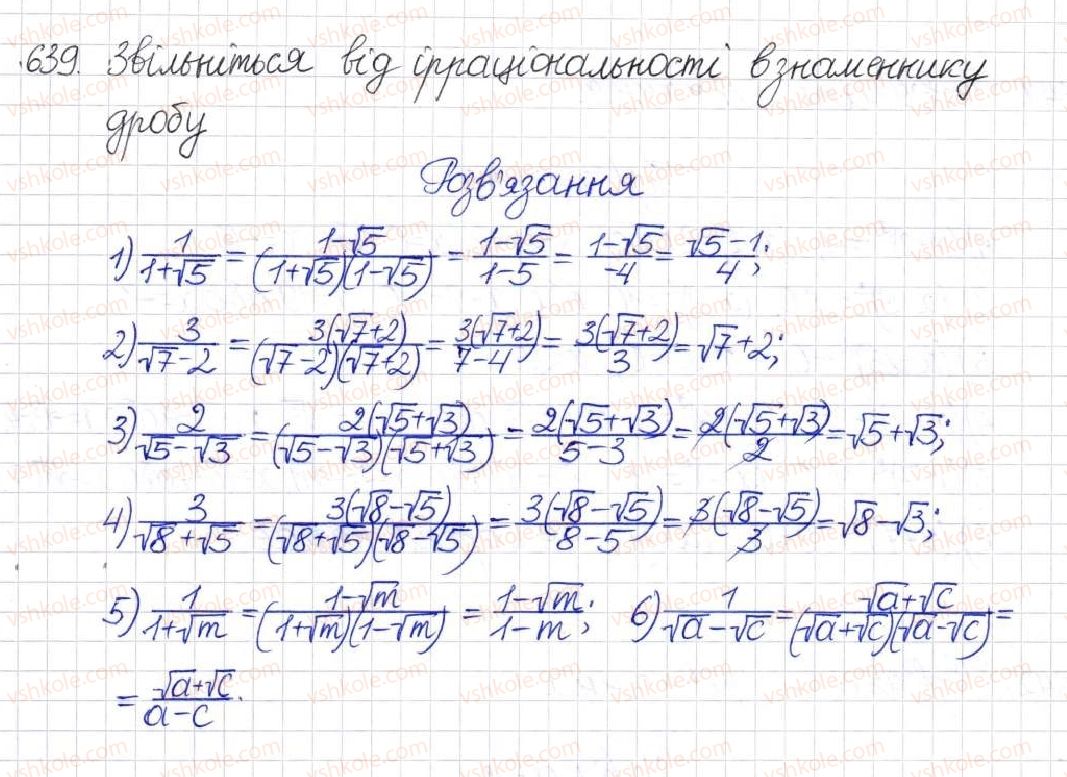 639. Звільніться від ірраціональності в знаменнику
дробу
Розв'язання
1) 1/(1+√5) = (1-√5)/((1+√5)(1-√5)) = (1-√5)/(1-5) = (1-√5)/(-4) = (√5-1)/4;
2) 3/(√7-2) = 3(√7+2)/((√7-2)(√7+2)) = 3(√7+2)/(7-4) = 3(√7+2)/3 = √7+2;
3) 2/(√5-√3) = 2(√5+√3)/((√5-√3)(√5+√3)) = 2(√5+√3)/(5-3) = 2(√5+√3)/2 = √5+√3;
4) 3/(√8+√5) = 3(√8-√5)/((√8+√5)(√8-√5)) = 3(√8-√5)/(8-5) = 3(√8-√5)/3 = √8-√3;
5) 1/(1+√m) = (1-√m)/((1+√m)(1-√m)) = (1-√m)/(1-m); 6) 1/(√a-√c) = (√a+√c)/((√a+√c)(√a-√c)) =
= (√a+√c)/(a-c).
vshkole.com